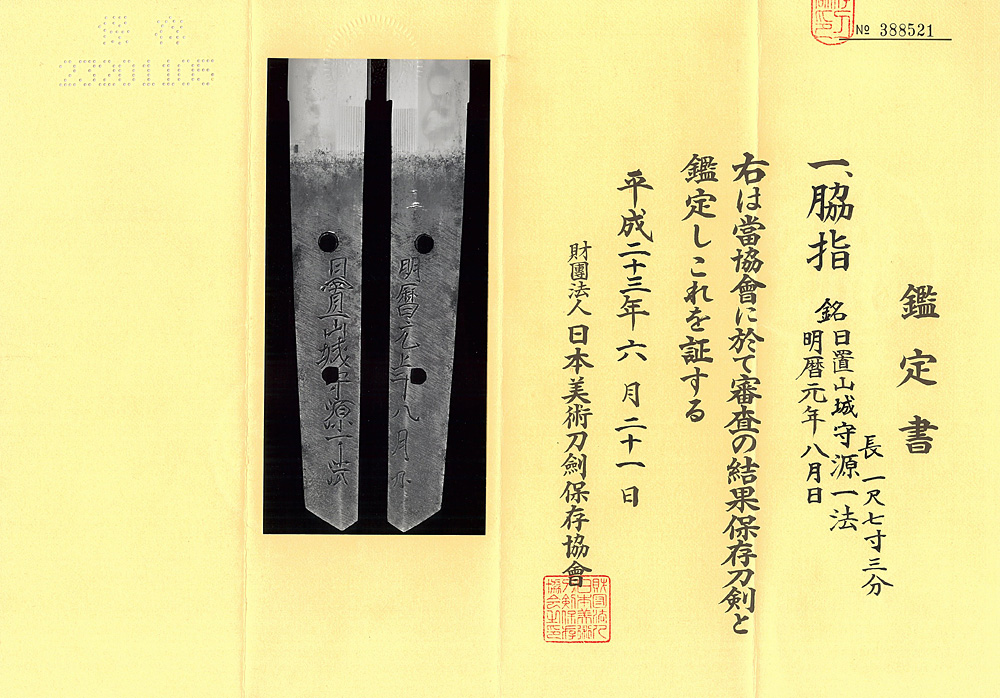 鑑定書
一、脇指
銘 日置山城守源一法
明暦元年八月日
長 一尺七寸三分
右は當協會に於て審査の結果保存刀剣と
鑑定しこれを証する
平成二十三年六月二十一日
財團法人 日本美術刀劍保存協會
財団法人日本美術刀剣保存協会之印
№ 388521
保存
23201105
日置山城守源一法
明暦元年八月日